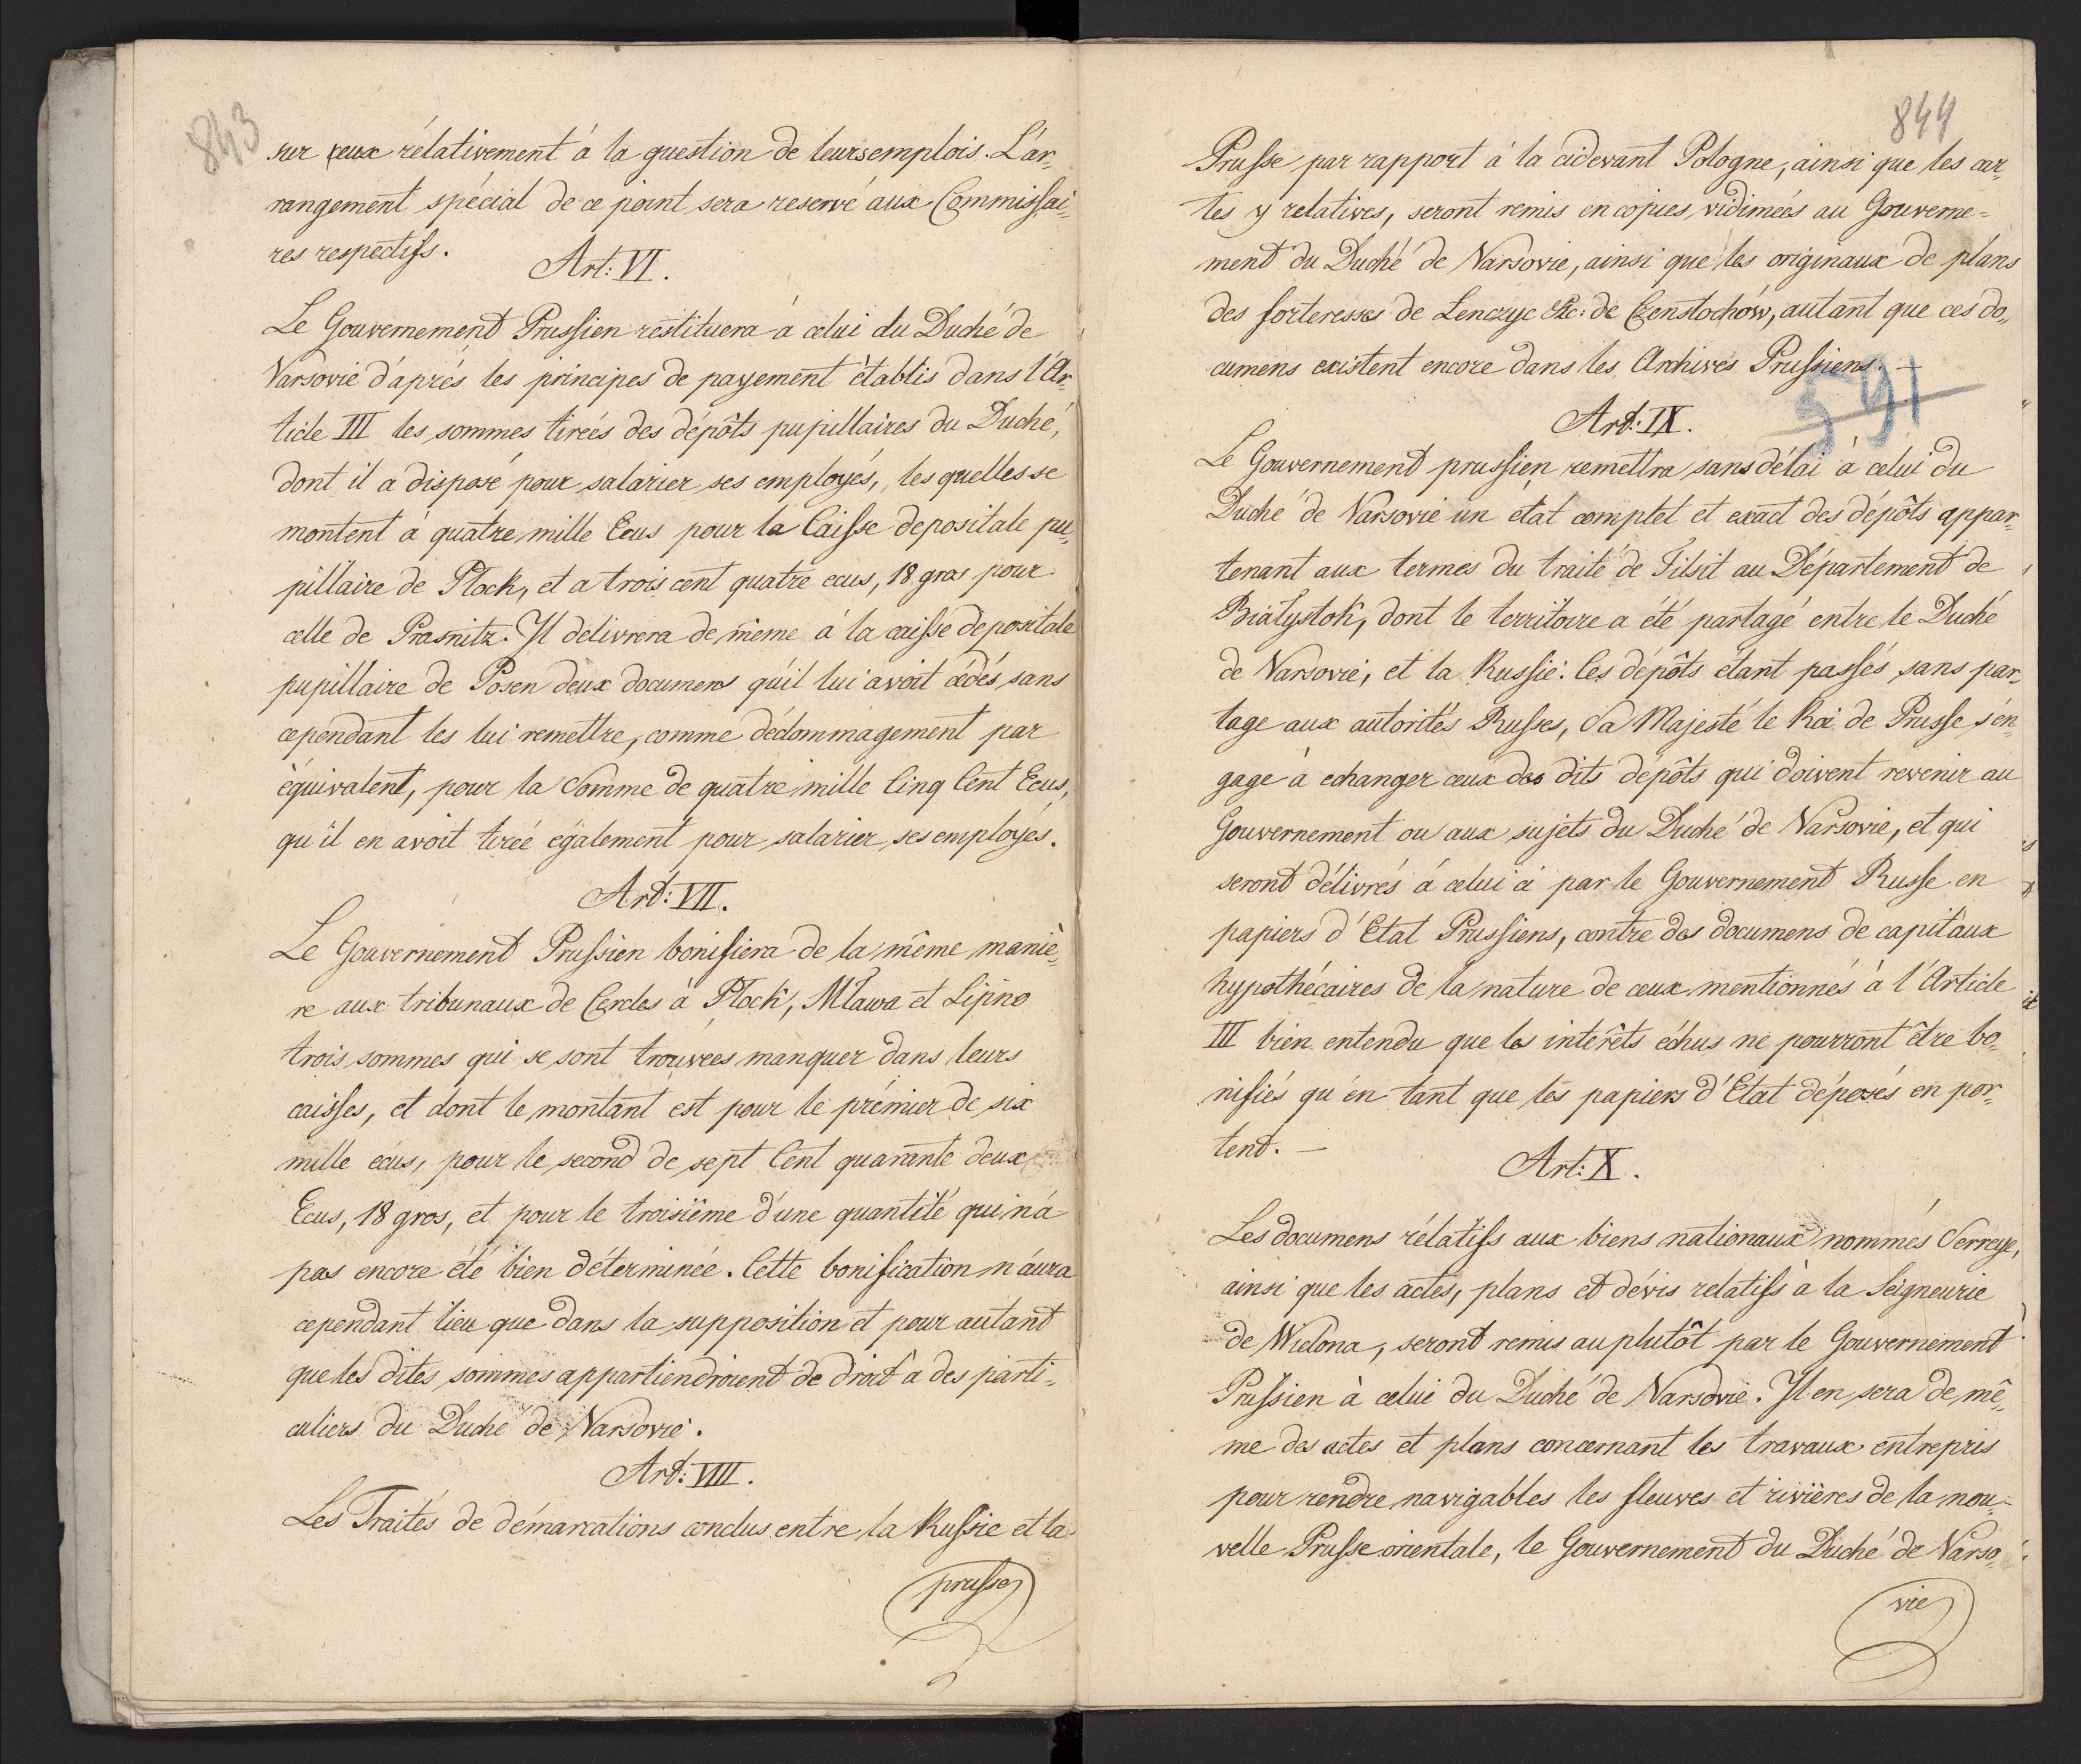 843
sur ceux rélativement à la question de leurs emplois. L'ar„
rangement spécial de ce point sera reservé aux Commissai„
res respectifs.
Art: VI.
Le Gouvernement Prussien restituera à celui du Duché de
Varsovie d'aprés les principes de payement ètablis dans l'Ar„
ticle III les sommes tireés des dépôts pupillaires du Duché,
dont il a disposé pour salarier ses employés, les quelles se
montent à quatre mille Ecus pour la Caisse depositale pu„
pillaire de Plock, et a trois cent quatre ecus, 18 gros pour
celle de Prasnitz. Il delivrera de même à la caisse depositale
pupillaire de Posen deux documens qu'il lui avoit cédés sans
cependant les lui remettre, comme dédommagement par
èquivalent, pour la Somme de quatre mille Cinq Cent Ecus,
qu'il en avoit tireé également pour salarier ses employés.
Art: VII.
Le Gouvernement Prussien bonifiera de la même maniè„
re aux tribunaux de Cercles à Plock, Mława et Lipno
trois sommes qui se sont trouvees manquer dans leurs
caisses, et dont le montant est pour le prémier de six
mille ecus, pour le second de sept Cent quarante deux
Ecus, 18 gros, et pour le troisiême d'une quantité qui n'a
pas encore été bien déterminée. Cette bonification n'aura
cependant lieu que dans la supposition et pour autant
que les dites sommes appartiendroient de droit a des parti„
culiers du Duché de Varsovie.
Art: VIII.
Les Traités de démarcations conclus entre la Russie et la
prusse
844
Prusse par rapport à la cidevant Pologne, ainsi que les car„
tes y relatives, seront remis en copies vidimées au Gouverne=
ment du Duché de Varsovie, ainsi que les originaux de plans
des forteresses de Lenczyc Etc: de Czenstochów, autant que ces do„
cumens existent encore dans les Archives Prussiens. —
591
Art: IX.
Le Gouvernement prussien remettra sans délai à celui du
Duché de Varsovie un état complet et exact des dépôts appar„
tenant aux termes du traité de Tilsit au Département de
Białystok, dont le territoire a été partagé entre le Duché
de Varsovie, et la Russie: Ces dépôts étant passés sans par„
tage aux autorités Russes, Sa Majesté le Roi de Prusse s'en„
gage à echanger ceux des dits dépôts qui doivent revenir au
Gouvernement ou aux sujets du Duché de Varsovie, et qui
seront délivrés à celui ci par le Gouvernement Russe en
papiers d'Etat Prussiens, contre des documens de capitaux
hypothécaires de la nature de ceux mentionnés à l'Article
III bien entendu que les intérêts échus ne pourront être bo„
nifiés qu'en tant que les papiers d'Etat déposés en por„
tent. —
Art: X.
Les documens rélatifs aux biens nationaux nommés Serreye,
ainsi que les actes, plans et dévis relatifs à la Seigneurie
de Wielona, seront remis au plutôt par le Gouvernement
Prussien à celui du Duché de Varsovie. Il en sera de mê„
me des actes et plans concernant les travaux entrepris
pour rendre navigables les fleuves et rivières de la nou=
velle Prusse orientale, le Gouvernement du Duché de Varso„
vie